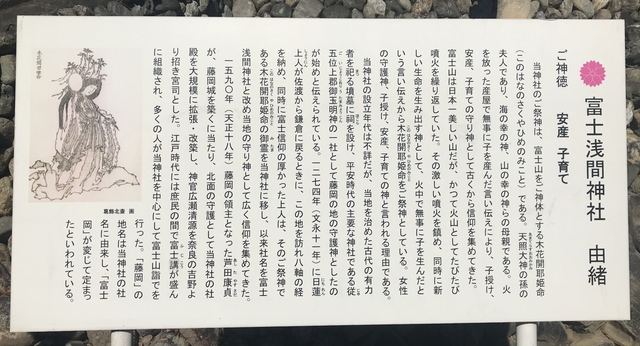 富士浅間神社　由緒
ご神徳　安産　子育て
当神社のご祭神は、富士山をご神体とする木花開耶姫命
(このはなのさくやひめのみこと)である。天照大神の孫の
夫人であり、海の幸の神、山の幸の神らの母親である。火
を放った産屋で無事に子を産んだ言い伝えにより、子授け、
安産、子育ての守り神として古くから信仰を集めてきた。
富士山は日本一美しい山だが、かつて火山としてたびたび
噴火を繰り返していた。その激しい噴火を鎮め、同時に新
しい生命を生み出す神として、火中で無事に子を生んだと
いう言い伝えから木花開耶姫命をご祭神としている。女性
の守護神、子授け、安産、子育ての神と言われる理由である。
当神社の設立年代は不詳だが、当地を治めた古代の有力
者を祀る墳墓に祠を設け、平安時代の主要な神社である従
五位上郡御玉明神の一社として藤岡の地の守護神としたの
が始めと伝えられている。一二七四年(文永十一年)に日蓮
上人が佐渡から鎌倉に戻るときに、この地を訪れ八軸の経
を納め、同時に富士信仰の厚かった上人は、そのご祭神で
ある木花開耶姫命の御霊を当神社に移し、以来社名を富士
浅間神社と改め当地の守り神として広く信仰を集めてきた。
一五九〇年(天正十八年)藤岡の領主となった芦田康貞
が、藤岡城を築くに当たり、北面の守護として当神社の社
殿を大規模に拡張・改築し、神官広瀬清源を奈良の吉野よ
り招き宮司とした。江戸時代には庶民の間で富士講が盛ん
に組織され、多くの人が当神社を中心にして富士山詣でを
行った。「藤岡」の
地名は当神社の社
名に由来し、「富士
岡」が変じて定まっ
たといわれている。
葛飾北斎　画